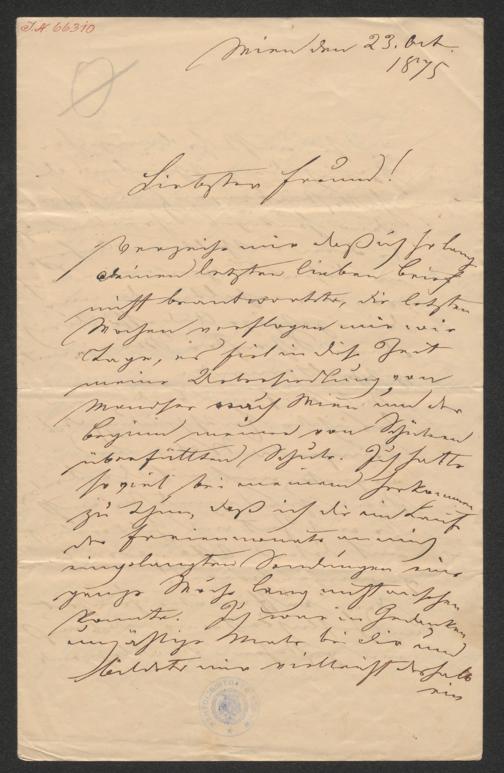 I.N. 66310
Wien den 23. Oct.
1875
Liebster Freund!
Verzeihe mir daß ich so lange
deinen letzten lieben Brief
nicht beantwortete, die letzten
Wochen verflogen mir wie
Tage, es fiel in diese Zeit
meine Uebersiedlung von
Mondsee nach Wien und der
Beginn meiner von Schülern
überfüllten Schule. Ich hatte
so viel bei meinem Herkommen
zu thun, daß ich die im Lauf
der Ferienmonate an mich
eingelangten Sendungen eine
ganze Woche lang nicht ansehen
konnte. Ich war in Gedanken
unzählige Male bei dir und
bildete mir vielleicht deshalb
ein